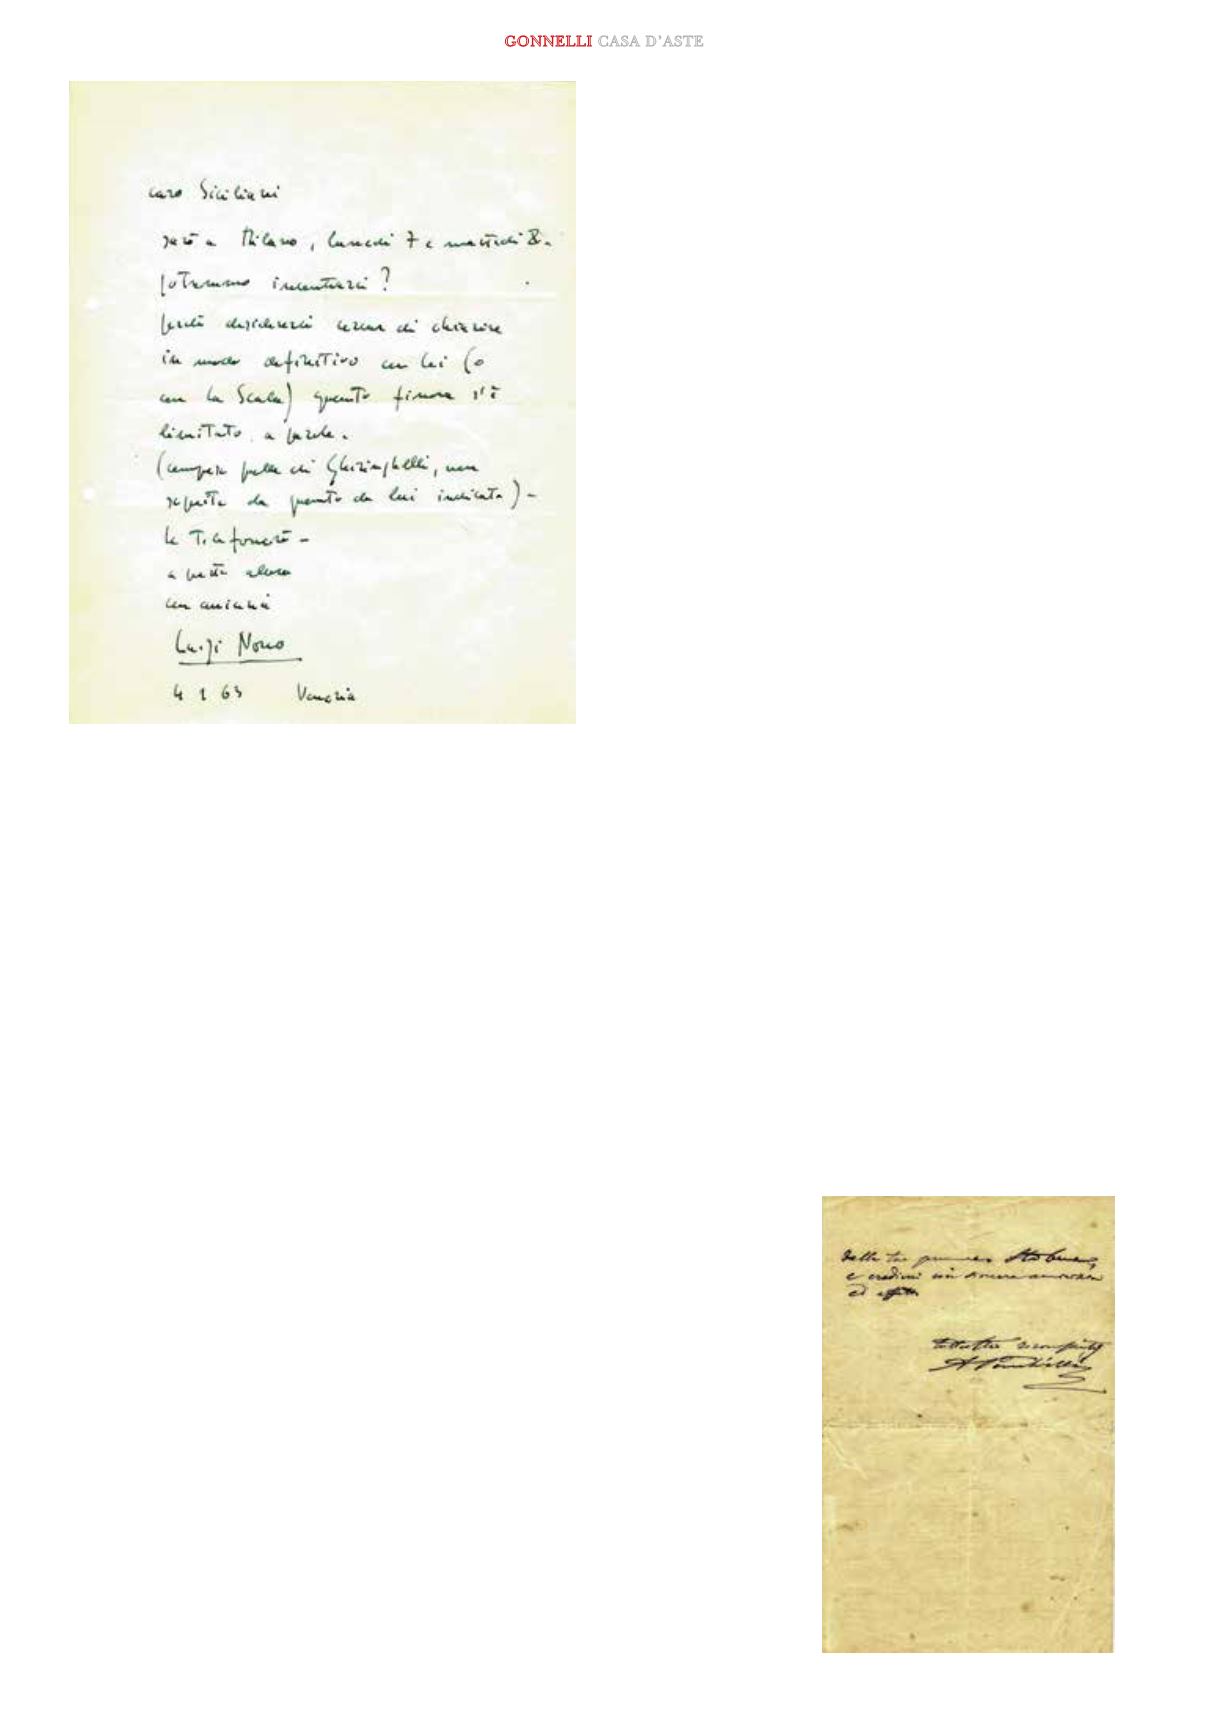 GONNELLI CASA D'ASTE
caro Siciliani
sarò a Milano, lunedì 7 e martedì 8.
potremmo incontrarci?
perché desidererei di chiarire
in modo definitivo con lei (o
con la Scala) quanto finora s'è
limitato a parole.
(compresa quella di Ghiringhelli, non
seguita da quanto da lui indicato) -
le telefonerò -
a presto allora
con amicizia
Luigi Nono
4 1 63 Venezia
della tua
e credimi con sincera amicizia
ed affetto
A Ponchielli